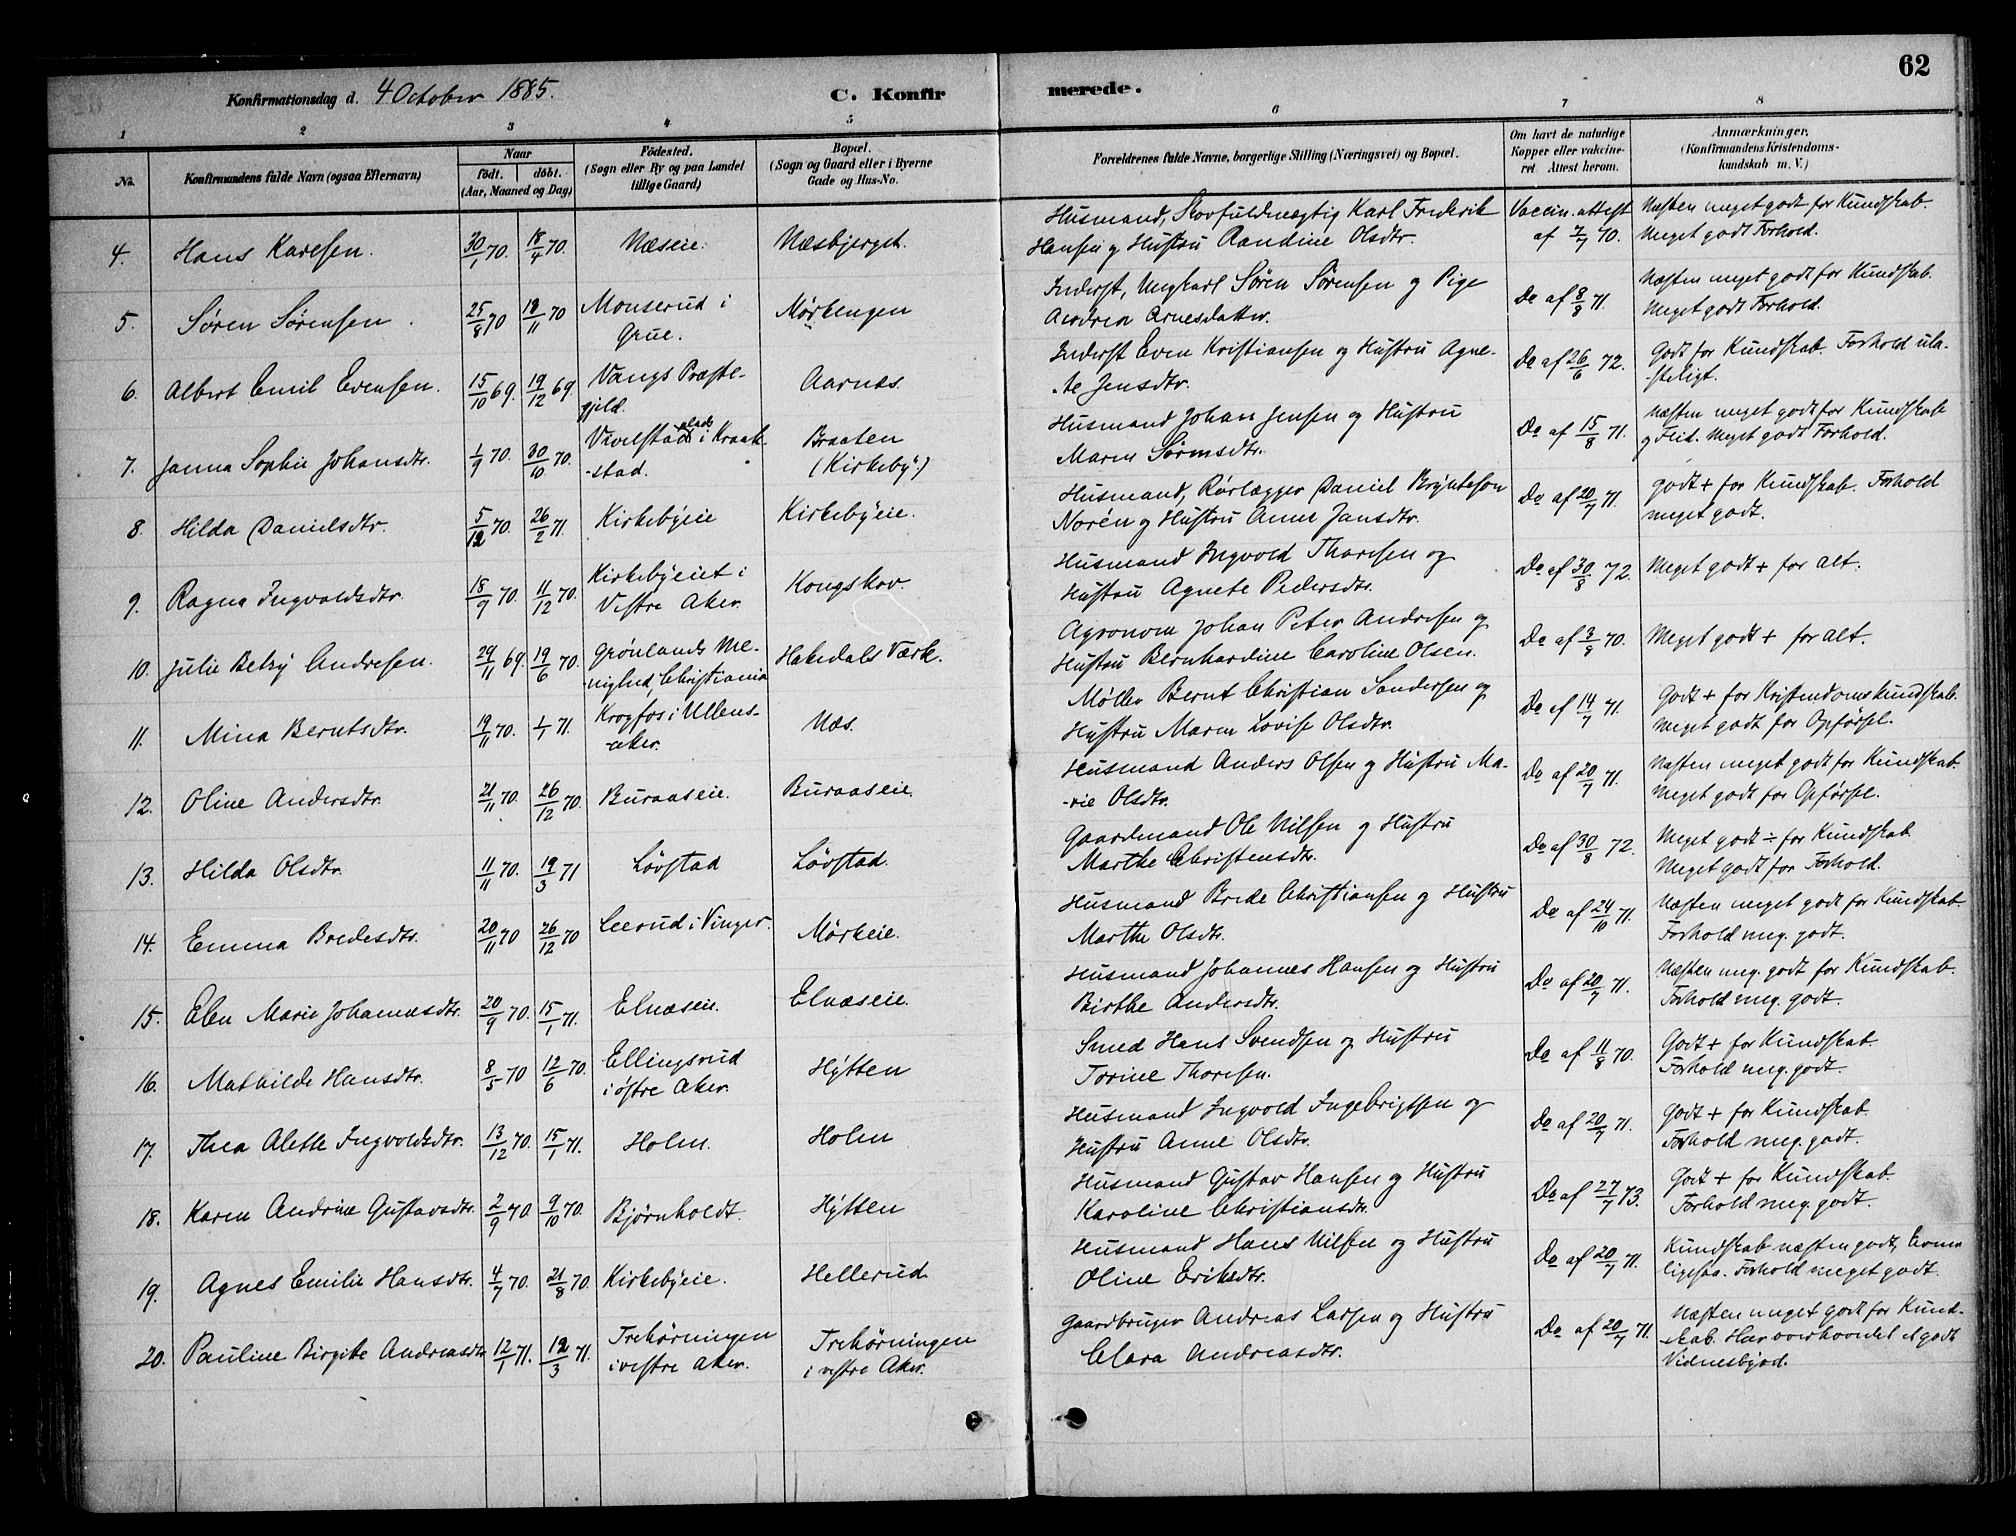 62
Konfirmationsdag d. 4 October 1885.
C. Konfir
merede.
1 2 3 4 5 6 7 8
No.
Konfirmandens fulde Navn (ogsaa Efternavn)
Naar
født. døbt.
(Aar, Maaned og Dag)
Fødested.
(Sogn eller By og paa Landet
tillige Gaard)
Bopæl.
(Sogn og Gaard eller i Byerne
Gade og Hus-No.
Forældrenes fulde Navne, borgerlige Stilling (Næringsvei) og Bopæl.
Om havt de naturlige
Kopper eller vaccine-
ret. Attest herom.
Anmærkninger.
(Konfirmandens Kristendoms-
kundskab m. V.)
4. Hans Karlsen. 30/1 70. 18/4 70. Næseie. Næsbjerget.
Husmand, Skovfuldmægtig Karl Frederik
Hansen og Hustru Randine Olsdtr.
Vaccin. attest
af 7/7 70.
Næsten meget godt for Kundskab.
Meget godt Forhold.
5. Søren Sørensen. 25/8 70 18/11 70 Monserud i
Grue.
Mørkengen
Inderst, Ungkarl Søren Sørensen og Pige
Andrea Arnesdatter.
Do af 8/8 71.
Næsten meget godt for Kundskab.
Meget godt Forhold.
6. Albert Emil Evensen. 15/10 69. 19/12 69. Vangs Præste-
gjeld.
Aarnes.
Inderst Even Kristiansen og Hustru Agne-
te Jensdtr.
Do af 26/6 72.
Godt for Kundskab. Forhold ula-
steligt.
7. Janna Sophie Johansdtr. 1/9 70. 30/10 70. Vevelstadplads i Kraak-
-stad.
Braaten
(Kirkeby.)
Husmand Johan Jensen og Hustru
Maren Sørensdtr.
Do af 15/8 71.
Næsten meget godt for Kundskab
og Flid. Meget godt Forhold.
8. Hilda Danielsdtr. 5/12 70. 26/2 71. Kirkebyeie Kirkebyeie.
Husmand, Rørlægger Daniel Bryntesøn
Norén og Hustru Anne Jansdtr.
Do af 20/7 71.
godt + for Kundskab. Forhold
meget godt.
9. Ragna Ingvoldsdtr. 18/9 70. 11/12 70. Kirkebyeiet i
Vestre Aker.
Kongskov.
Husmand Ingvold Thoresen og
Hustru Agnete Pedersdtr.
Do af 30/8 72.
Meget godt + for alt.
10. Julie Betzy Andresen. 29/11 69. 19/6 70. Grønlands Me-
-nighed, Christiania
Hakedals Værk.
Agronom Johan Peter Andresen og
Hustru Bernhardine Caroline Olsen.
Do af 3/8 70.
Meget godt + for alt.
11. Mina Berntsdtr. 19/11 70. 1/1 71. Krogfos i Ullens-
-aker.
Næs.
Møller Bernt Christian Sandersen og
Hustru Maren Lovise Olsdtr.
Do af 14/7 71.
Godt + for Kristendomskundskab.
Meget godt for Opførsel.
12. Oline Andersdtr. 21/11 70. 26/12 70. Buraaseie. Buraaseie.
Husmand Anders Olsen og Hustru Ma-
-rie Olsdtr.
Do af 20/7 71.
Næsten meget godt for Kundskab.
Meget godt for Opførsel.
13. Hilda Olsdtr. 11/11 70. 19/3 71 Løvstad Løvstad.
Gaardmand Ole Nilsen og Hustru
Marthe Christensdtr.
Do af 30/8 72.
Meget godt ÷ for Kundskab.
Meget godt for Forhold.
14. Emma Bredesdtr. 20/11 70 26/12 70 Leerud i Vinger. Mørkeie.
Husmand Brede Christiansen og Hustru
Marthe Olsdtr.
Do af 24/10 71.
Næsten meget godt for Kundskab.
Forhold meg. godt.
15. Elen Marie Johannesdtr. 20/9 70. 15/1 71. Elnæseie. Elnæseie.
Husmand Johannes Hansen og Hustru
Birthe Andersdtr.
Do af 20/7 71.
Næsten meg. godt for Kundskab.
Forhold meg. godt.
16. Mathilde Hansdtr. 8/5 70 12/6 70. Ellingsrud
i østre Aker.
Hytten
Smed Hans Svendsen og Hustru
Torine Thoresen.
Do af 11/8 70.
Godt + for Kundskab.
Forhold meg. godt.
17. Thea Alette Ingvoldsdtr. 13/12 70. 15/1 71. Holm. Holm
Husmand Ingvold Ingebrigtsen og
Hustru Anne Olsdtr.
Do af 20/7 71.
Godt + for Kundskab.
Forhold meg. godt.
18. Karen Andrine Gustavsdtr. 2/9 70. 9/10 70. Bjørnholdt. Hytten
Husmand Gustav Hansen og Hustru
Karoline Christiansdtr.
Do af 27/7 73.
Godt + for Kundskab.
Forhold meg. godt.
19. Agnes Emilie Hansdtr. 4/7 70. 21/8 70. Kirkebyeie. Hellerud.
Husmand Hans Nilsen og Hustru
Oline Eriksdtr.
Do af 20/7 71.
Kundskab næsten godt, Evne
ligesaa. Forhold meget godt.
20. Pauline Birgite Andreasdtr. 12/1 71. 12/3 71. Trehørningen
i vestre Aker.
Trehørningen
i vestre Aker.
Gaardbruger Andreas Larsen og Hustru
Clara Andreasdtr.
Do af 20/7 71.
Næsten meget godt for Kund-
-skab. Har overhovedet et godt
Vidnesbyrd.